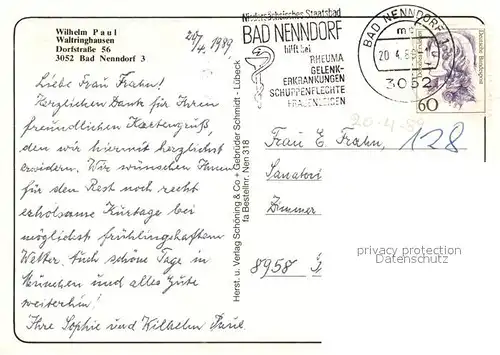 Wilhelm Paul
Waltringhausen
Dorfstraße 56
3052 Bad Nenndorf 3
20/4. 1989
Liebe Frau Frahn!
Herzlichen Dank für Ihren
freundlichen Kartengruß,
den wir hiermit herzlichst
erwidern. Wir wünschen Ihnen
für den Rest noch recht
erholsame Kurtage bei
möglichst frühlingshaftem
Wetter. Auch schöne Tage in
München und alles Gute
weiterhin!
Ihre Sophie und Wilhelm Paul
Herst. u. Verlag Schöning & Co + Gebrüder Schmidt - Lübeck
fa Bestellnr. Nen 318
Niedersächsisches Staatsbad
BAD NENNDORF
hilft bei
RHEUMA
GELENK-
ERKRANKUNGEN
SCHUPPENFLECHTE
FRAUENLEIDEN
BAD NENNDORF
20.4.89
3052
Deutsche Bundespost
60
20-4-89
Frau E. Frahn,
128
Sanatori
Zimmer
8958
privacy protection
Datenschutz